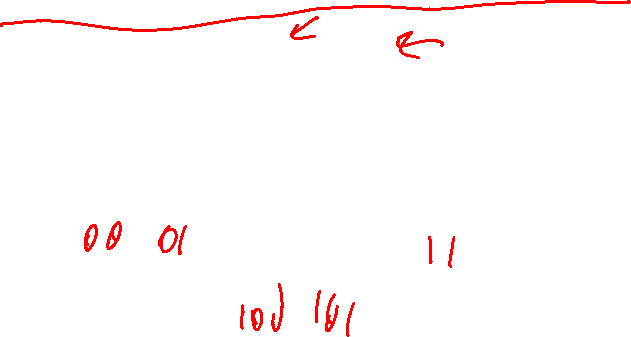 00 01 11
100 101